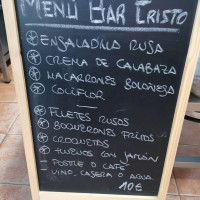 MENÚ BAR CRISTO
ENSALADILLA RUSA
CREMA DE CALABAZA
MACARRONES BOLOÑESA
COLIFLOR
FILETES RUSOS
BOQUERONES FRITOS
CROQUETAS
HUEVOS CON JAMÓN
- POSTRE O CAFÉ
- VINO, CASERA O AGUA
10€